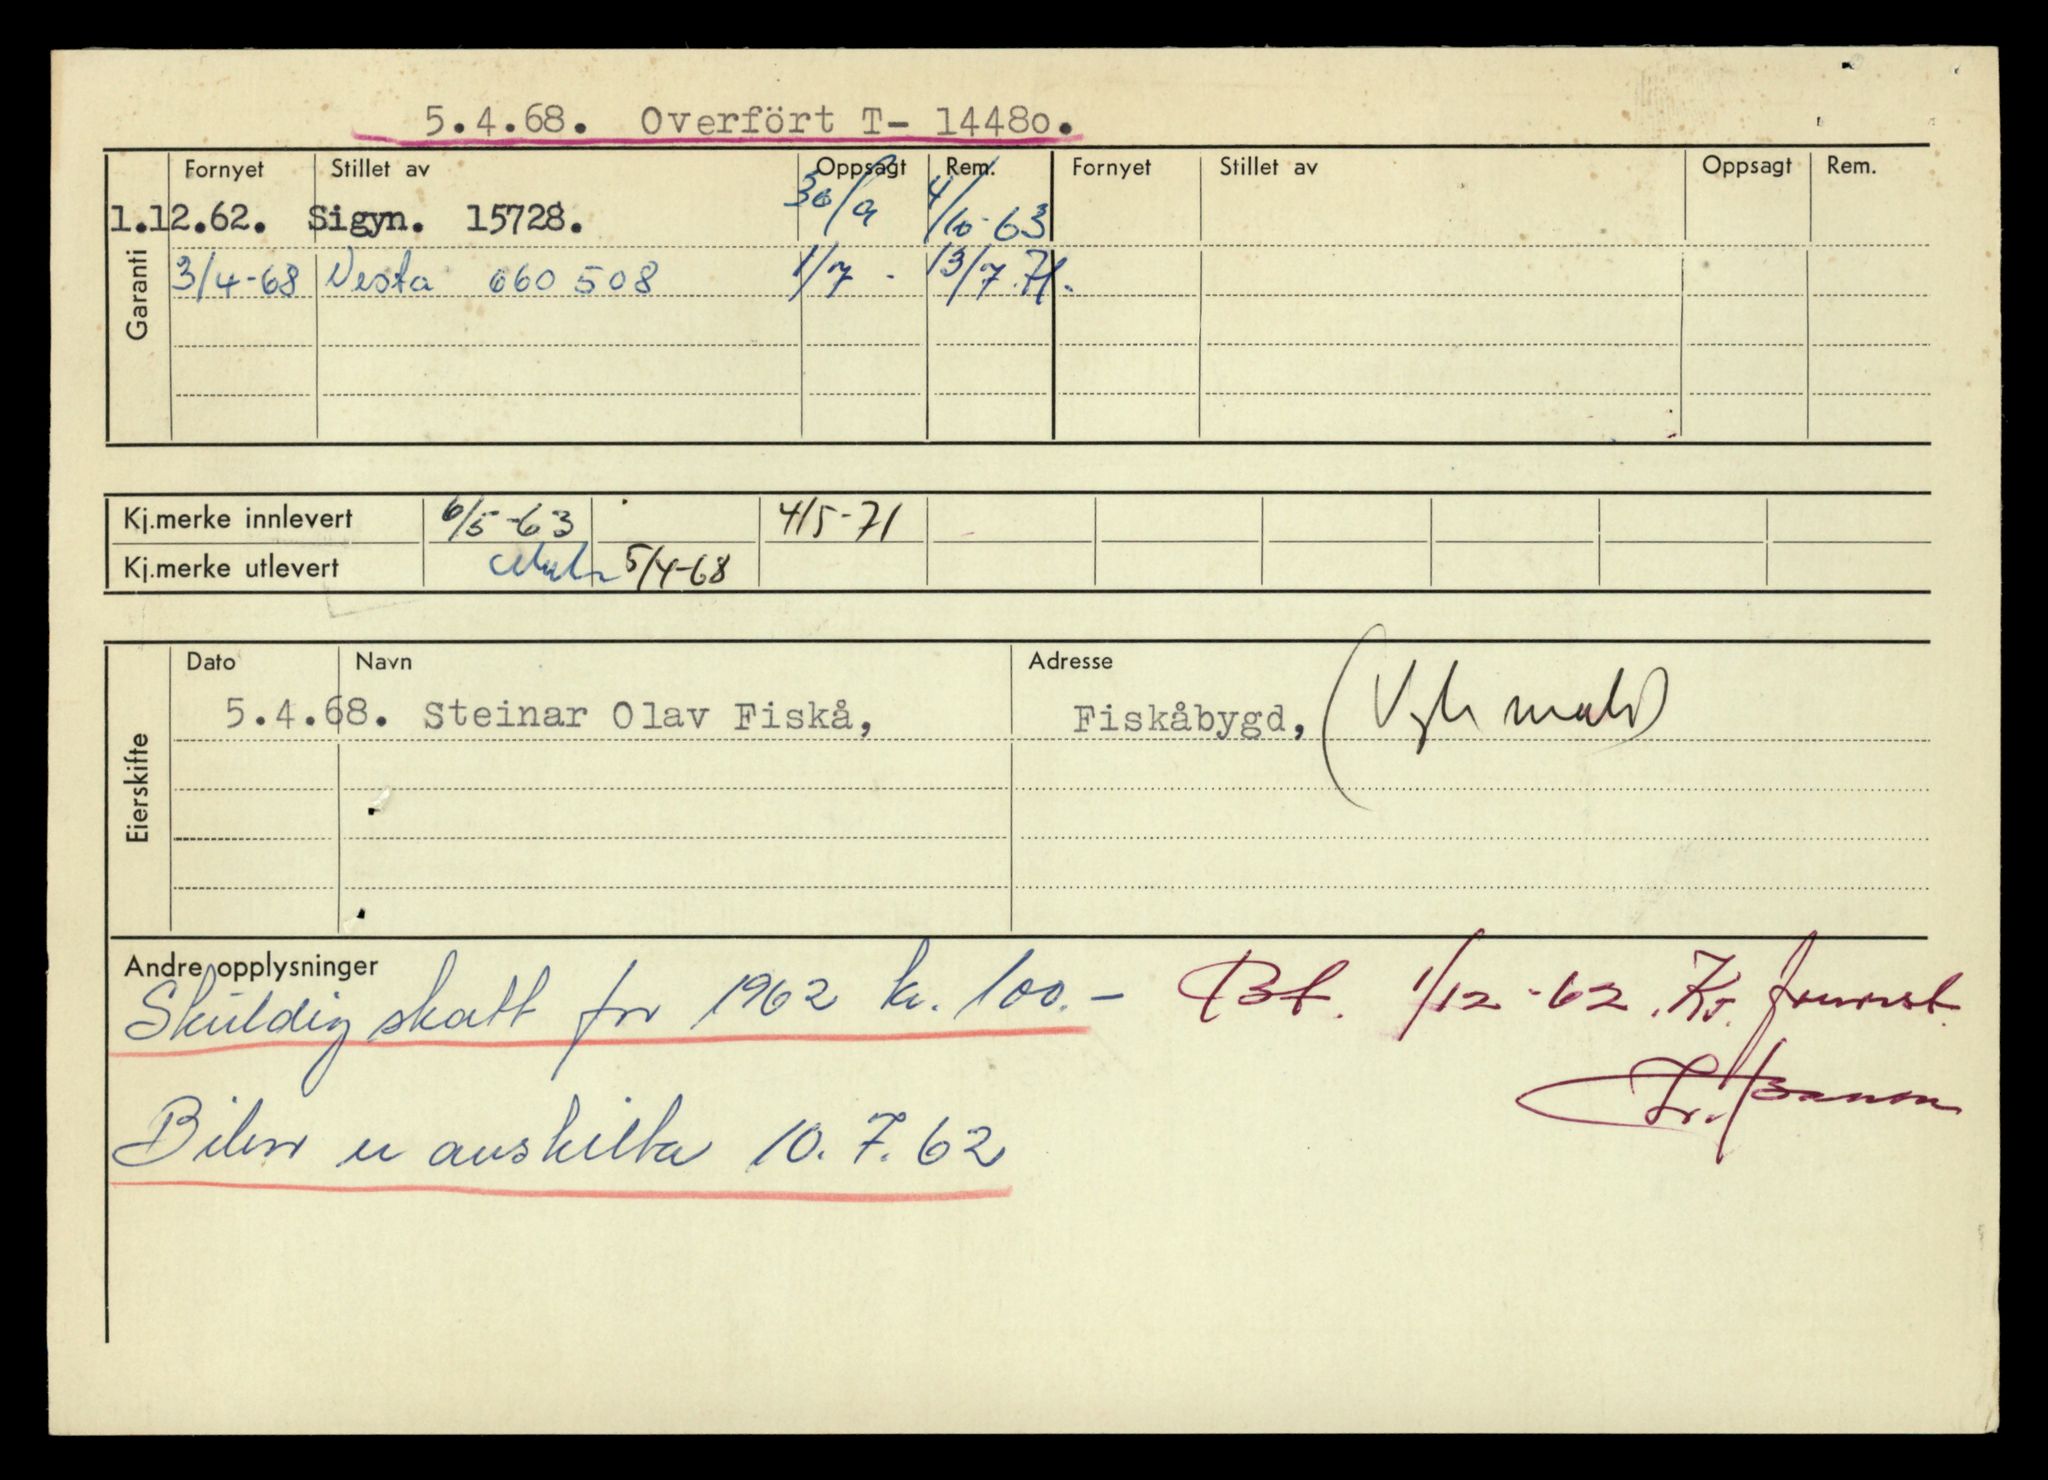 5.4.68. Overfört T- 14480.
Fornyet Stillet av Oppsagt Rem. Fornyet Stillet av Oppsagt Rem.
1.12.62. Sigyn. 15728. 30/9 4/10-63
3/4-68 Vesta 660 508 1/7 - 13/7.71.
Garanti
Kj.merke innlevert 6/5-63 4/5-71
Kj.merke utlevert 5/4-68
Dato Navn Adresse
5.4.68. Steinar Olav Fiskå, Fiskåbygd,
Eierskifte
Andre opplysninger
Skuldig skatt for 1962 kr. 100.- Bt. 1/12-62. Kr.
Bilen er avskilta 10.7.62